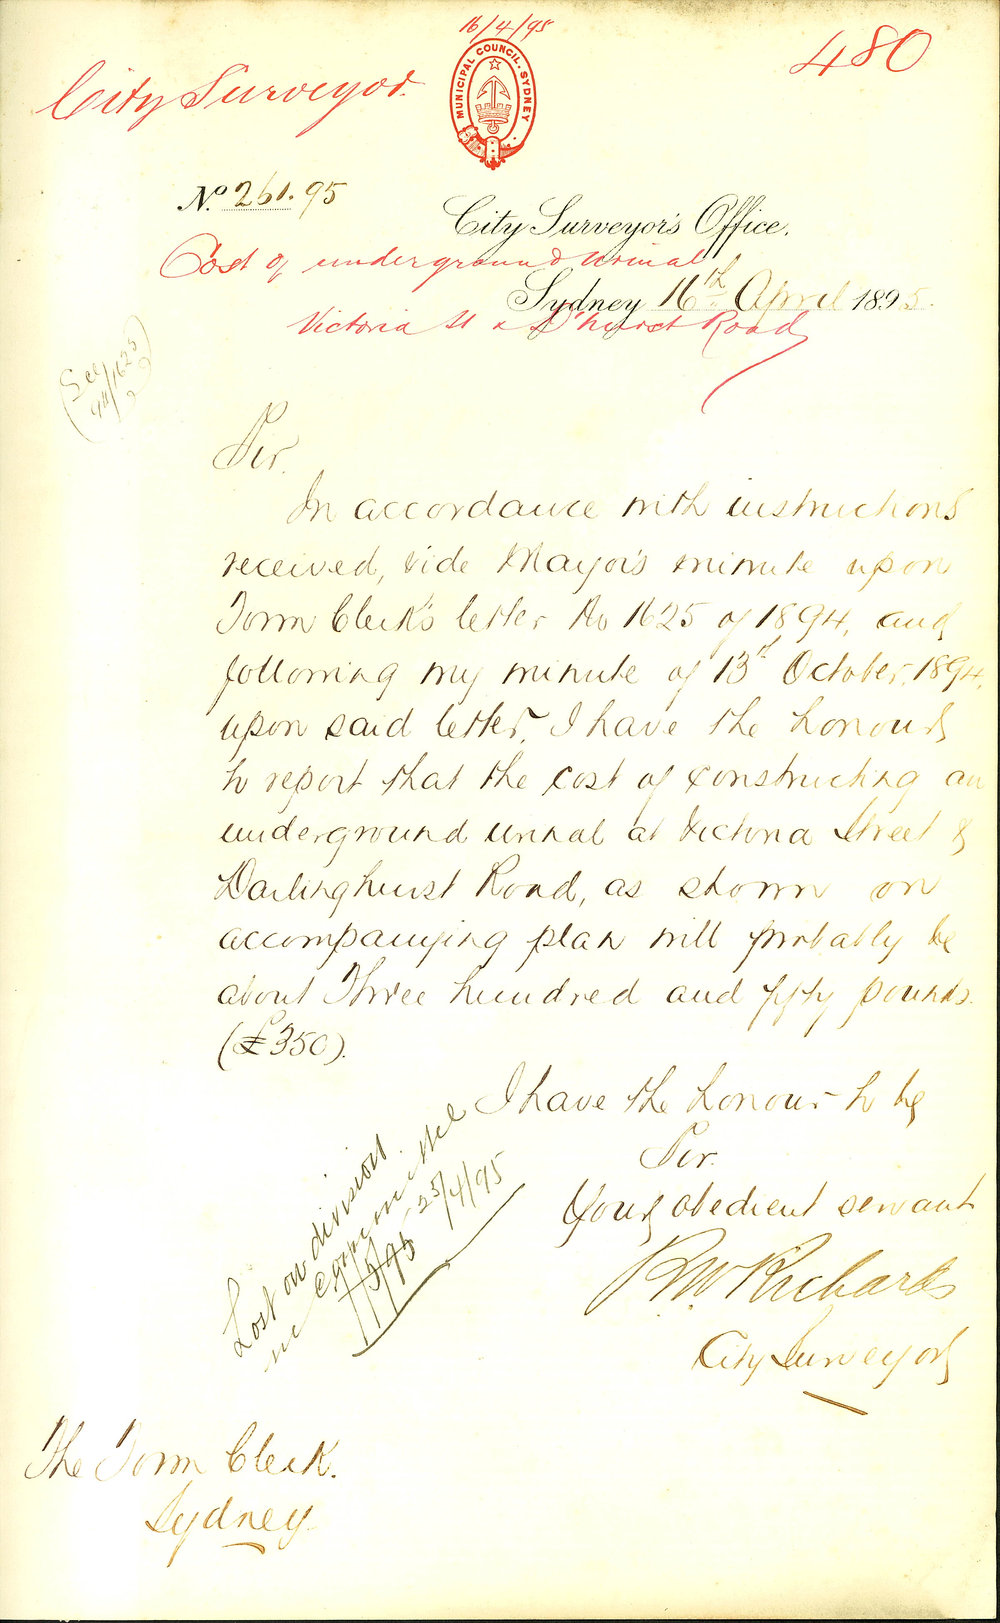 16/4/95
480
City Surveyor.
MUNICIPAL COUNCIL. SYDNEY
No. 261.95
City Surveyor's Office.
Cost of underground urinal
Sydney 16th April 1895.
Victoria St & D'hurst Road
(See 94/1625)
Sir.
In accordance with instructions
received, vide Mayor's minute upon
Town Clerk's letter No 1625 of 1894, and
following my minute of 13th October, 1894,
upon said letter, I have the honour
to report that the cost of constructing an
underground urinal at Victoria Street &
Darlinghurst Road, as shown on
accompanying plan will probably be
about Three hundred and fifty pounds.
(£350).
I have the honour to be
Sir.
Your obedient servant
R W Richards
City Surveyor
Lost on division
in Committee
25/4/95
The Town Clerk.
Sydney